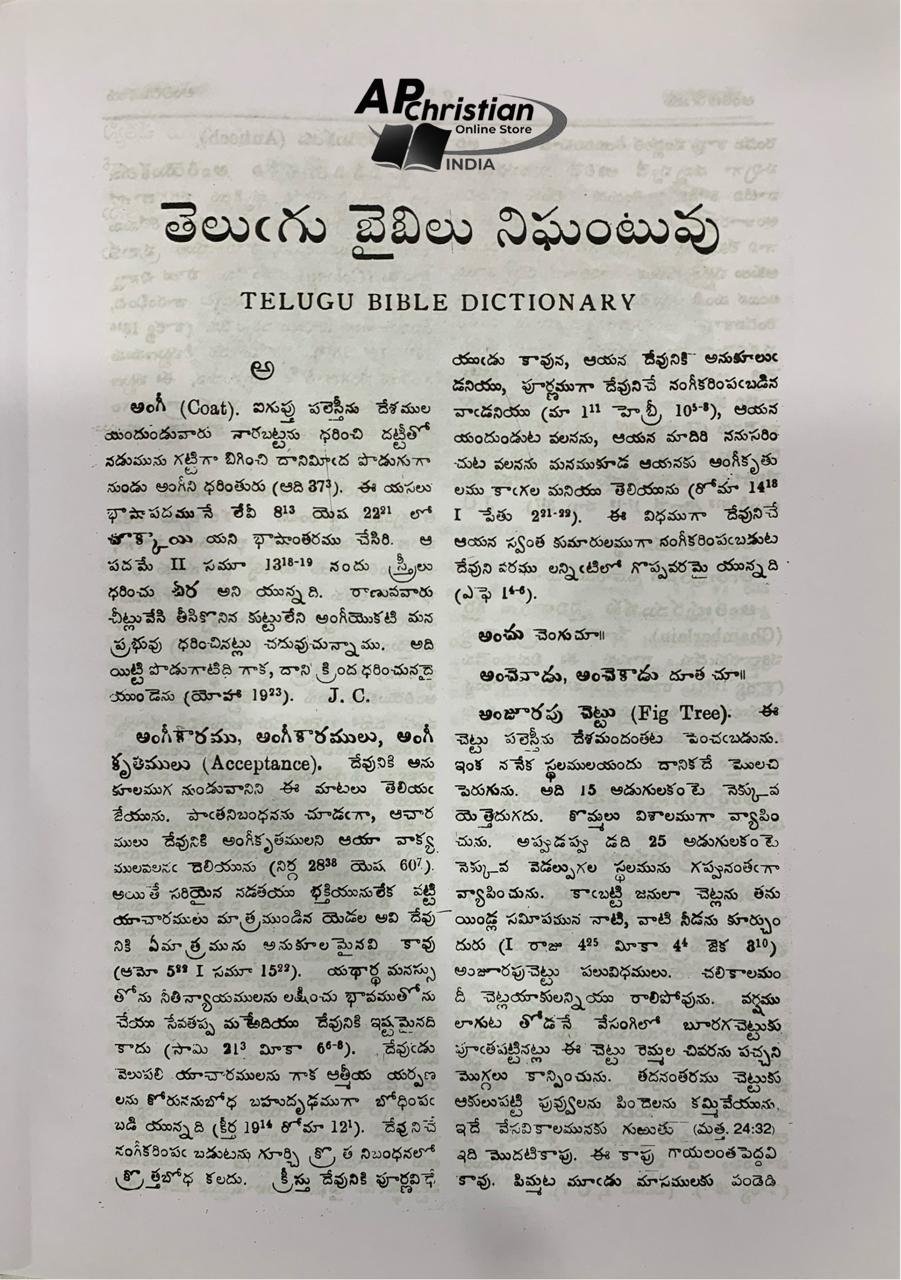 AP Christian
Online Store
INDIA
తెలుఁగు బైబిలు నిఘంటువు
TELUGU BIBLE DICTIONARY
అ
అంగీ (Coat). ఐగుప్తు పలెస్తీను దేశముల
యందుండువారు నారబట్టను ధరించి దట్టీతో
నడుమును గట్టిగా బిగించి దానిమీఁద పొడుగుగా
నుండు అంగీని ధరింతురు (ఆది 37³). ఈ యసలు
భాషాపదమునే లేవీ 8¹³ యెష 22²¹ లో
చొక్కాయి యని భాషాంతరము చేసిరి. ఆ
పదమే II సమూ 13¹⁸⁻¹⁹ నందు స్త్రీలు
ధరించు చీర అని యున్నది. రాణువవారు
చీట్లువేసి తీసికొనిన కుట్టులేని అంగీయొకటి మన
ప్రభువు ధరించినట్లు చదువుచున్నాము. అది
యిట్టి పొడుగాటిది గాక, దాని క్రింద ధరించునదై
యుండెను (యోహా 19²³). J. C.
అంగీకారము, అంగీకారములు, అంగీ
కృతములు (Acceptance). దేవునికి అను
కూలముగ నుండువానిని ఈ మాటలు తెలియఁ
జేయును. పాఁతనిబంధనను చూడఁగా, ఆచార
ములు దేవునికి అంగీకృతములని ఆయా వాక్య
ములవలనఁ దెలియును (నిర్గ 28³⁸ యెష 60⁷).
అయితే సరియైన నడతయు భక్తియునులేక వట్టి
యాచారములు మాత్రముండిన యెడల అవి దేవు
నికి ఏమాత్రమును అనుకూలమైనవి కావు
(ఆమో 5²² I సమూ 15²²). యథార్థ మనస్సు
తోను నీతిన్యాయములను లక్షించు భావముతోను
చేయు సేవతప్ప మఱేదియు దేవునికి ఇష్టమైనది
కాదు (సామె 21³ మీకా 6⁶⁻⁸). దేవుఁడు
వెలుపలి యాచారములను గాక ఆత్మీయ యర్పణ
లను కోరుననుబోధ బహుదృఢముగా బోధింపఁ
బడి యున్నది (కీర్త 19¹⁴ రోమా 12¹). దేవునిచే
నంగీకరింపఁ బడుటను గూర్చి క్రొత్త నిబంధనలో
క్రొత్తబోధ కలదు. క్రీస్తు దేవునికి పూర్ణవిధే
యుఁడు కావున, ఆయన దేవునికి అనుకూలుఁ
డనియు, పూర్ణముగా దేవునిచే నంగీకరింపఁబడిన
వాఁడనియు (మా 1¹¹ హెబ్రీ 10⁵⁻⁸), ఆయన
యందుండుట వలనను, ఆయన మాదిరి ననుసరిం
చుట వలనను మనముకూడ ఆయనకు అంగీకృతు
లము కాఁగల మనియు తెలియును (రోమా 14¹⁸
I పేతు 2²¹⁻²²). ఈ విధముగా దేవునిచే
ఆయన స్వంత కుమారులముగా నంగీకరింపఁబడుట
దేవుని వరము లన్నిఁటిలో గొప్పవరమై యున్నది
(ఎఫె 1⁴⁻⁶).
అంచు చెంగుచూ॥
అంచెవాడు, అంచెకాడు దూత చూ॥
అంజూరపు చెట్టు (Fig Tree). ఈ
చెట్టు పలెస్తీను దేశమందంతట పెంచఁబడును.
ఇంక ననేక స్థలములయందు దానికదే మొలచి
పెరుగును. అది 15 అడుగులకంటె నెక్కువ
యెత్తెదుగదు. కొమ్మలు విశాలముగా వ్యాపిం
చును. అప్పుడప్పు డది 25 అడుగులకంటె
నెక్కువ వెడల్పుగల స్థలమును గప్పునంతఁగా
వ్యాపించును. కాఁబట్టి జనులా చెట్లను తను
యిండ్ల సమీపమున నాటి, వాటి నీడను కూర్చుం
దురు (I రాజు 4²⁵ మీకా 4⁴ జెక 3¹⁰)
అంజూరపుచెట్టు పలువిధములు. చలికాలమం
దీ చెట్లయాకులన్నియు రాలిపోవును. వర్షము
లాగుట తోడనే వేసంగిలో బూరగచెట్టుకు
పూఁతపట్టినట్లు ఈ చెట్టు రెమ్మల చివరను పచ్చని
మొగ్గలు కాన్పించును. తదనంతరము చెట్టుకు
ఆకులుపట్టి పువ్వులను పిందెలను కమ్మివేయును.
ఇదే వేసవికాలమునకు గుఱుతు (మత్త. 24:32)
ఇది మొదటికాపు. ఈ కాపు గాయలంతపెద్దవి
కావు. పిమ్మట మూఁడు మాసములకు పండెడి